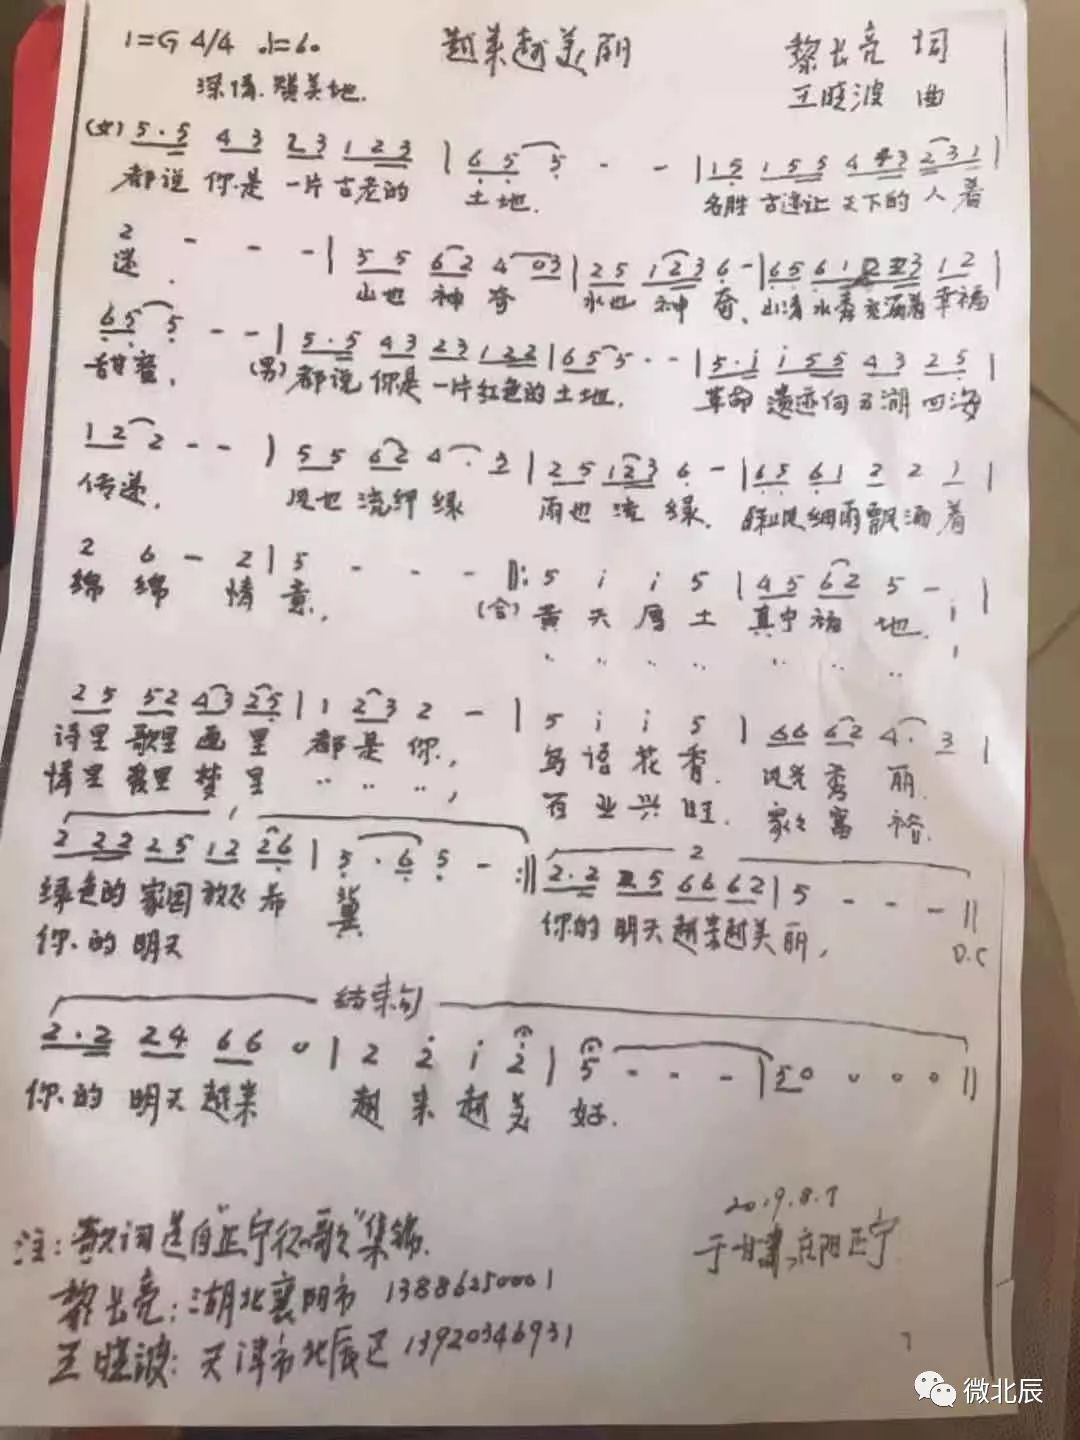 1=G 4/4 ♩=60 越来越美丽 黎长亮 词
深情.赞美地. 王晓波 曲
(女) 5·5 4 3 2 3 1 2 3 | 6 5 5 - - | 1 5 1 5 5 4 4 3 2 3 1 |
都说 你是 一片古老的 土地. 名胜 古迹让 天下的 人着
2 - - - | 5 5 6 2 4 0 3 | 2 5 1 2 3 6 - | 6 5 6 1 2 2 3 1 2 |
迷. 山也 神奇 水也 神 奇、山清水秀充满着幸福
6 5 5 - - | 5·5 4 3 2 3 1 2 2 | 6 5 5 - - | 5·i i 5 5 4 3 2 5 |
甜蜜, (男) 都说 你是 一片红色的 土地. 革命 遗迹向 五湖 四海
1 2 2 - - | 5 5 6 2 4 · 3 | 2 5 1 2 3 6 - | 6 5 6 1 2 2 1 |
传递. 风也 流 绿 雨也 流 绿. 风细雨飘洒着
2 6 - 2 | 5 - - - ‖: 5 i i 5 | 4 5 6 2 5 - i |
绵 绵 情 意. (合) 黄 天 厚 土 真宁福 地.
2 5 5 2 4 3 2 5 | 1 2 3 2 - | 5 i i 5 | 6 6 6 2 4 · 3 |
诗里 歌里 画 里 都是 你, 鸟语花香. 风光秀 丽.
情里 爱里 梦 里 百业兴旺. 家家富 裕.
1 2
2 2 2 2 5 1 2 2 6 | 5 · 6 5 - :‖ 2·2 2 5 6 6 6 2 | 5 - - - ‖
绿色的 家园 放飞 希 冀 你的 明天 越来越美 丽,
你的 明天 D.C
结束句
2·2 2 4 6 6 0 | 2 2 i 2 | 5 - - - | 5 0 0 0 0 ‖
你的 明天 越来 越 来 越 美 好.
2019.8.7
注: 歌词选自"正宁征歌"集锦. 于甘肃庆阳正宁
黎长亮: 湖北襄阳市 13886250001
王晓波: 天津市北辰区 13920346931
微北辰